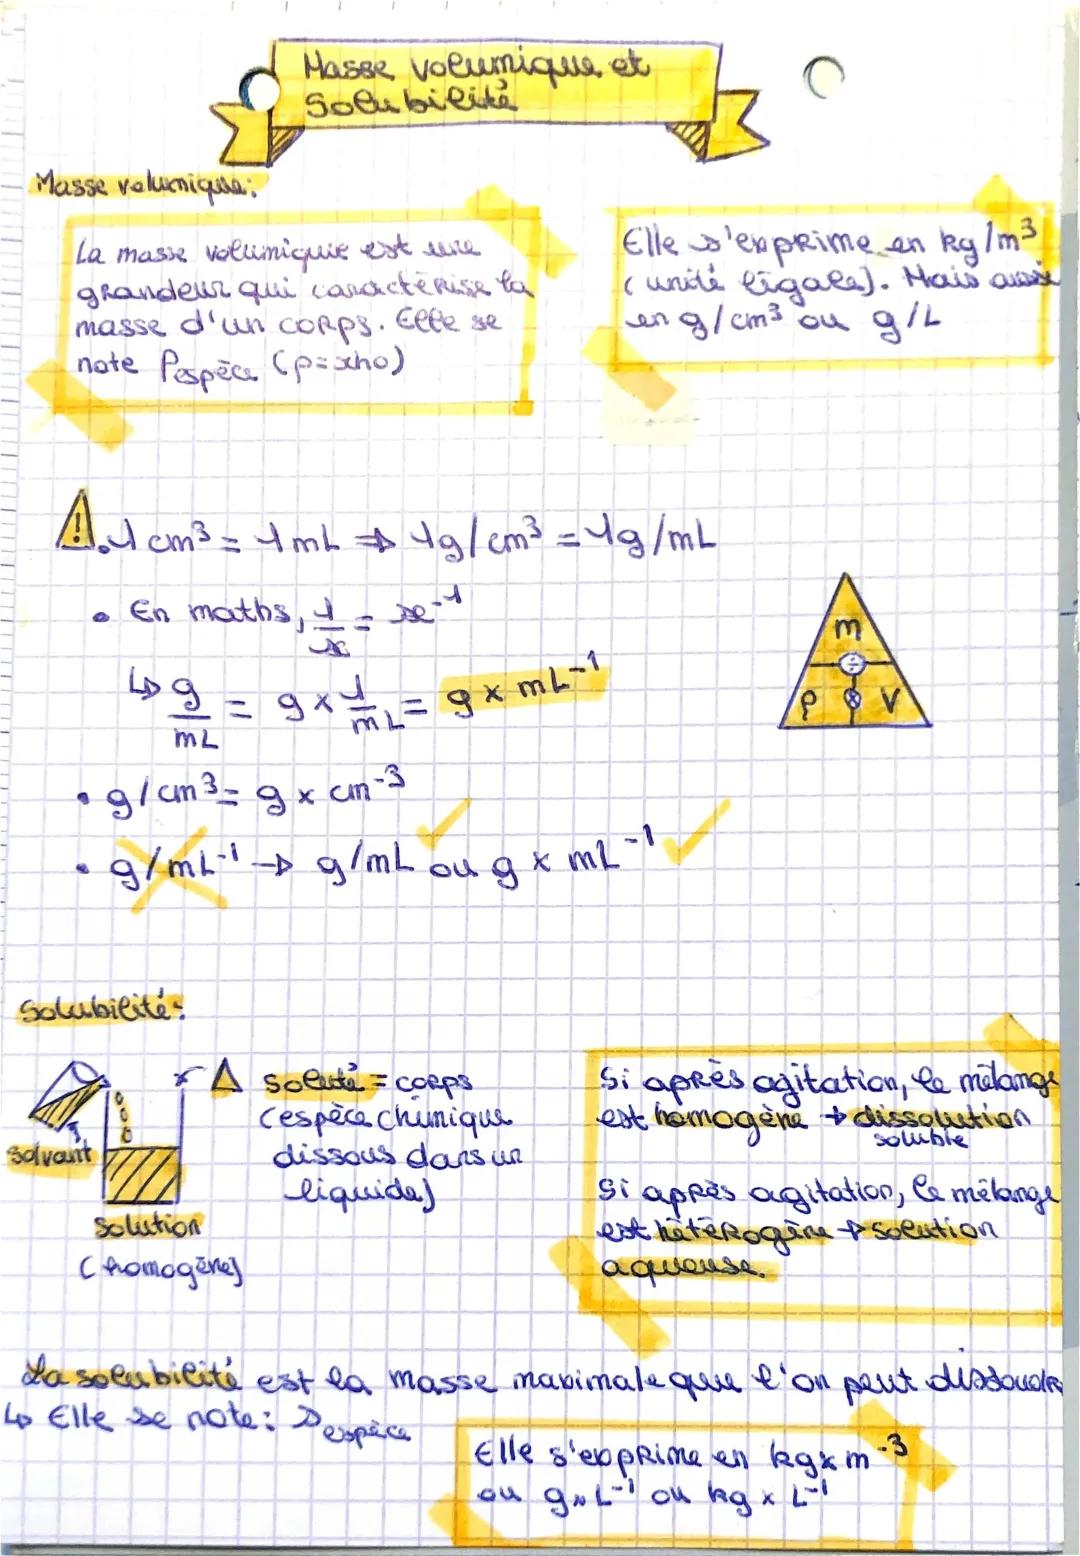 Masse volumique et
Solubilité
Masse volumique:
La masse volumique est une
grandeur qui caractérise la
masse d'un corps. Elle se
note ρespèce (ρ=rho)
Elle s'exprime en kg/m³
(unité légale). Mais aussi
en g/cm³ ou g/L
! • 1 cm³ = 1 mL ⇒ 1g/cm³ = 1g/mL
• En maths, 1/x = x⁻¹
↳ g/mL = g × 1/mL = g × mL⁻¹
m
÷
ρ ⊗ V
• g/cm³ = g × cm⁻³
• g/mL⁻¹ → g/mL ou g × mL⁻¹
Solubilité:
soluté = corps
(espèce chimique
dissous dans un
liquide)
solvant
solution
(homogène)
Si après agitation, le mélange
est homogène → dissolution
soluble
Si après agitation, le mélange
est hétérogène → solution
aqueuse.
La solubilité est la masse maximale que l'on peut dissoudre
↳ Elle se note: s espèce
Elle s'exprime en kg × m⁻³
ou g × L⁻¹ ou kg × L⁻¹